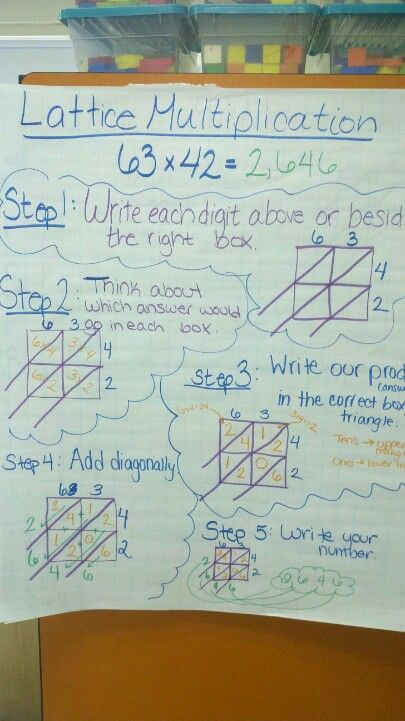 Lattice Multiplication
63 x 42 = 2,646
Step 1: Write each digit above or besid
the right box.
6 3
4
2
Step 2: Think about
which answer would
go in each box.
6 3
6x4 3x4 4
6x2 3x2 2
Step 3: Write our prod
(answ
in the correct box
triangle.
6x4=24 6 3 3x4=12
2 4 1 2 4
1 2 0 6 2
Tens → upper
Ones → lower
Step 4: Add diagonally
6 3
2 4 1 2 4
1 2 0 6 2
2
6
4
6
Step 5: Write your
number.
4
2
2 6 4 6
2 6 4 6